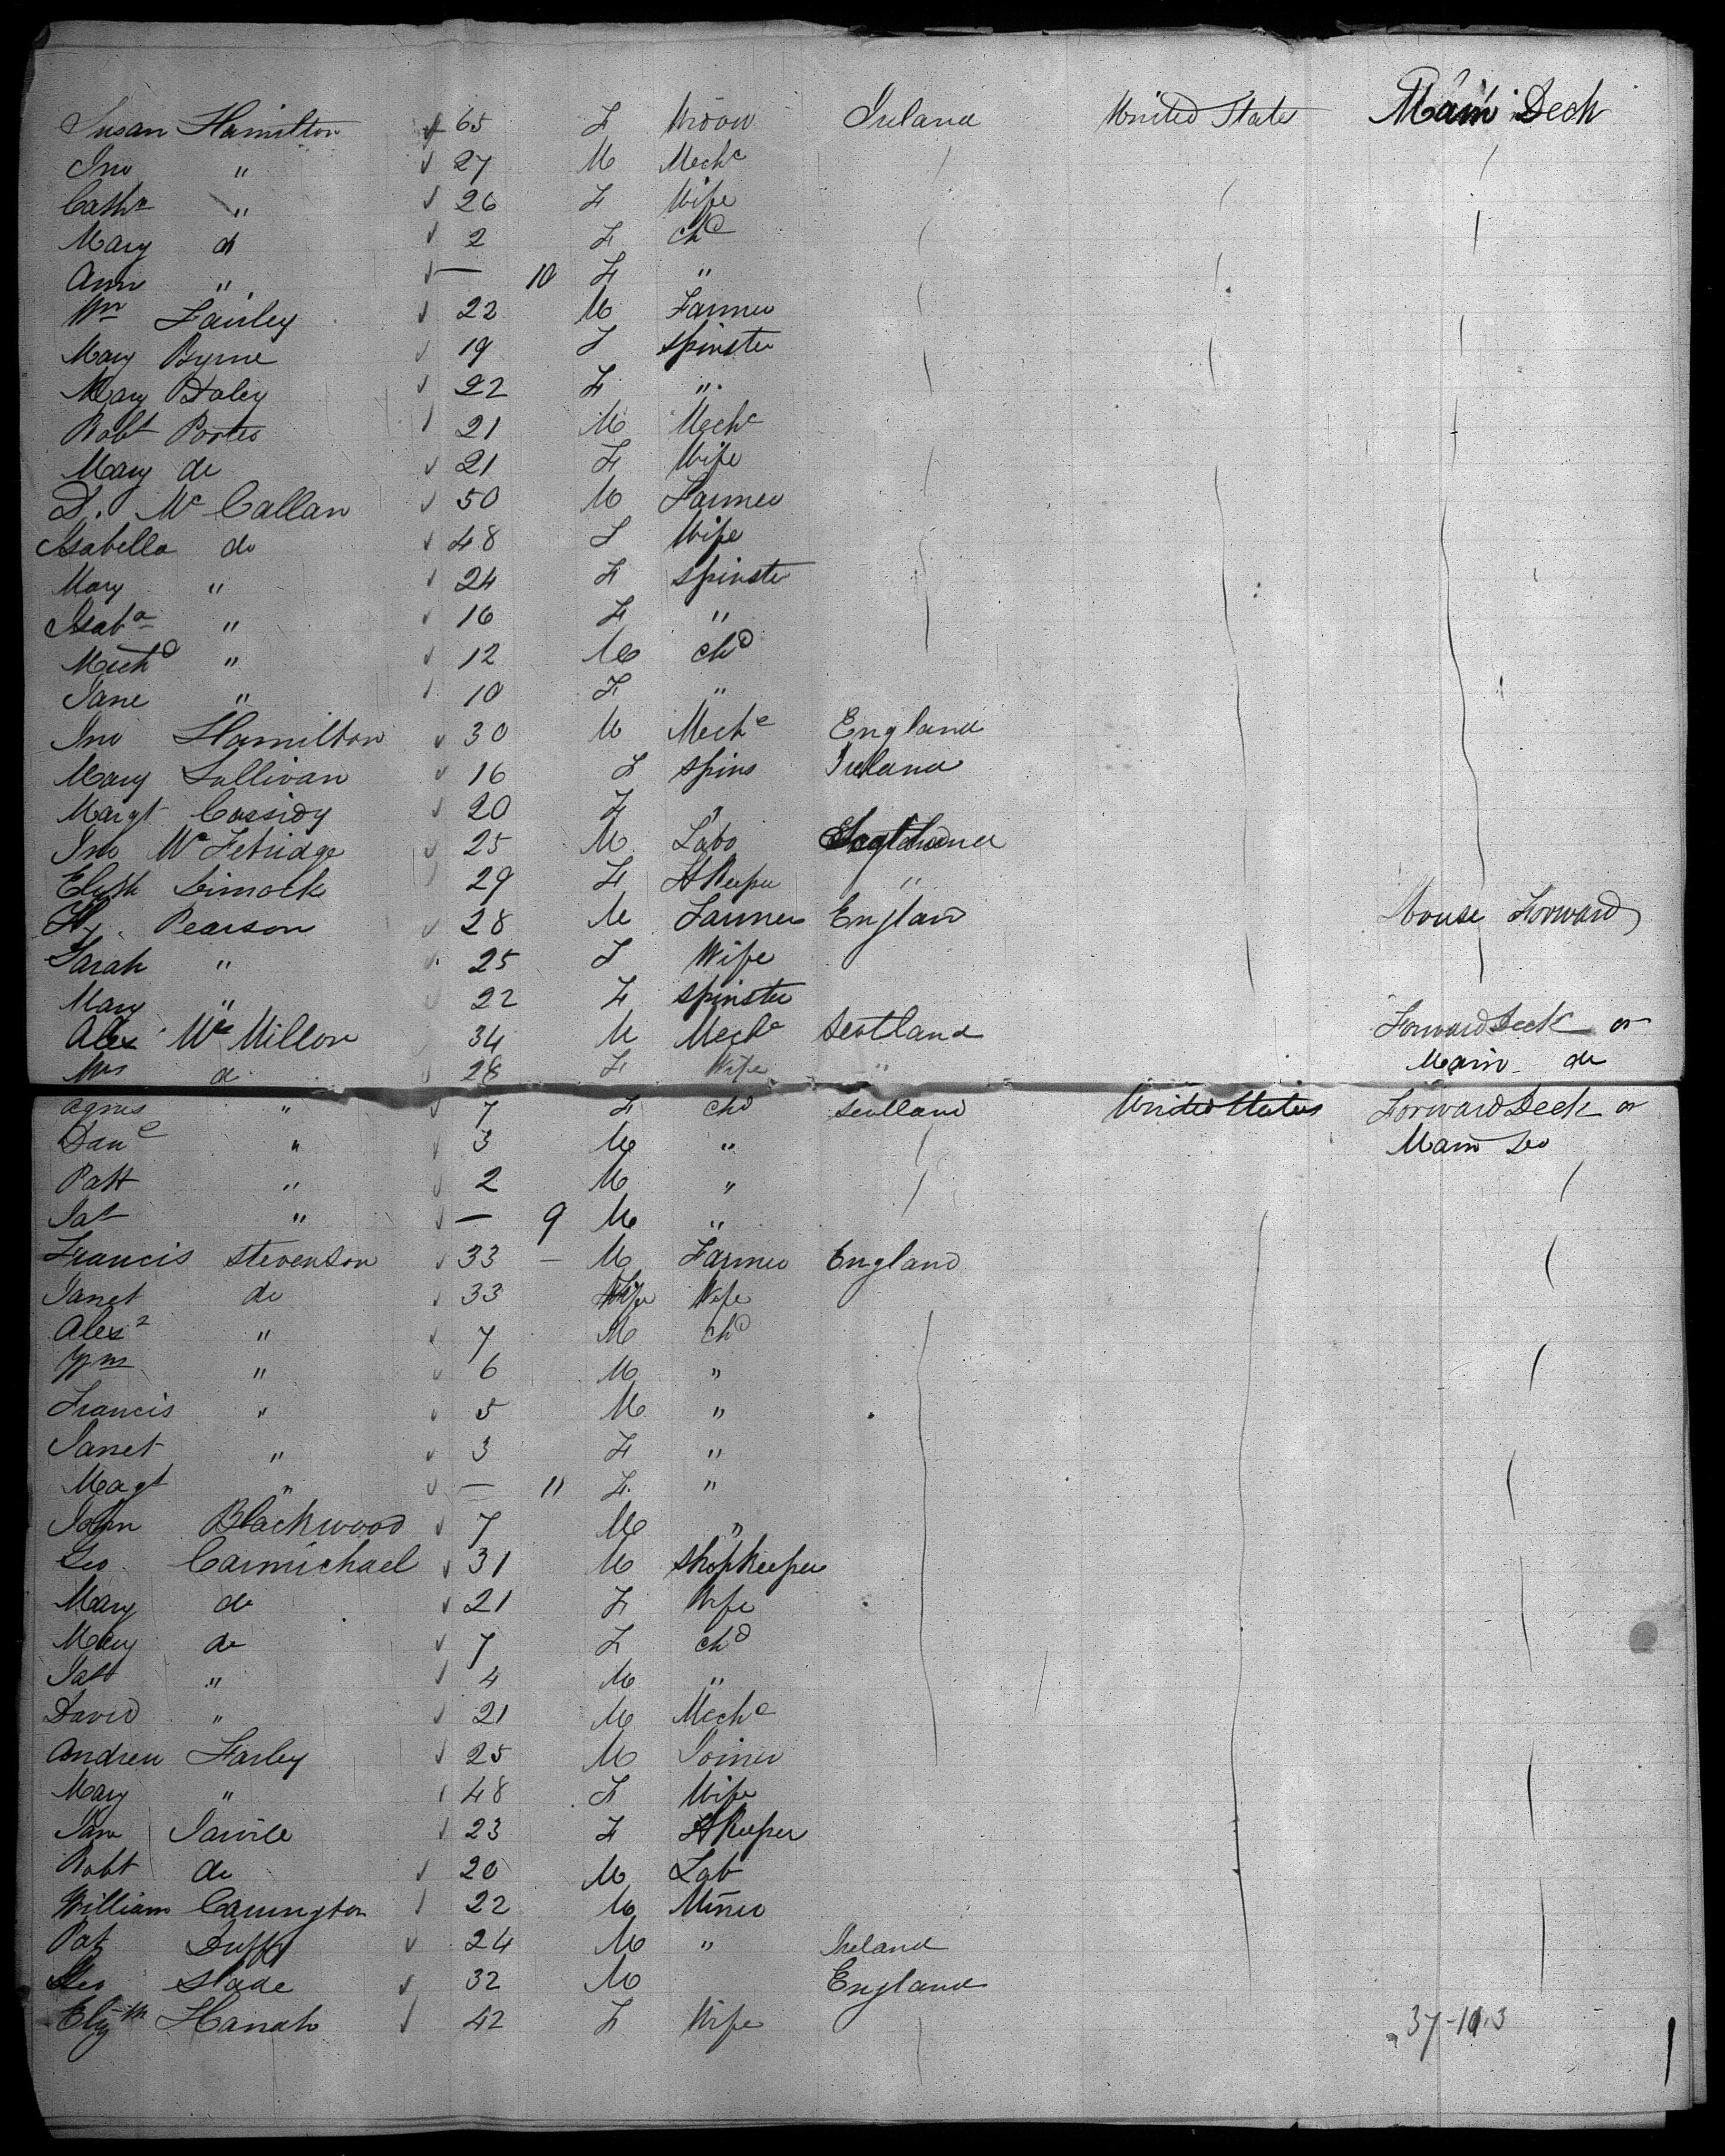 Susan Hamilton 65 F Widow Ireland United States Main Deck
Jno " 27 M Mechc
Catha " 26 F Wife
Mary do 2 F chd
Ann " — 10 F "
Wm Fairley 22 M Farmer
Mary Byrne 19 F Spinster
Mary Daley 22 F "
Robt Porter 21 M Mechc
Mary do 21 F Wife
D. McCallan 50 M Farmer
Isabella do 48 F Wife
Mary " 24 F Spinster
Isaba " 16 F "
" 12 M chd
Jane " 10 F "
Jno Hamilton 30 M Mechc England
Mary Sullivan 16 F Spins Ireland
Margt Cassidy 20 F
Jno McFetridge 25 M Labr
29 F HKeeper "
Hy. Pearson 28 M Farmer England House Forward
Sarah " 25 F Wife
Mary " 22 F Spinster
Alex McMillon 34 M Mechc Scotland Forward Deck or
Mrs do 28 F Wife " Main do
Agnes " 7 F chd Scotland United States Forward Deck or
Danl " 3 M " Main Do
Patt " 2 M "
" — 9 M "
Francis Stevenson 33 — M Farmer England
Janet do 33 Wife
Alexr " 7 M chd
Wm " 6 M "
Francis " 5 M "
Janet " 3 F "
Magt " — 11 F "
John Blackwood 7 M "
Geo Carmichael 31 M Shopkeeper
Mary do 21 F Wife
Mary do 7 F chd
" 4 M "
David " 21 M Mechc
Andrew Farley 25 M Joiner
Mary " 48 F Wife
Jane 23 F HKeeper
Robt do 20 M Lab
William Carrington 22 M Miner
Pat Duffy 24 M " Ireland
Geo Slade 32 M England
Elizth Hanah 42 F Wife